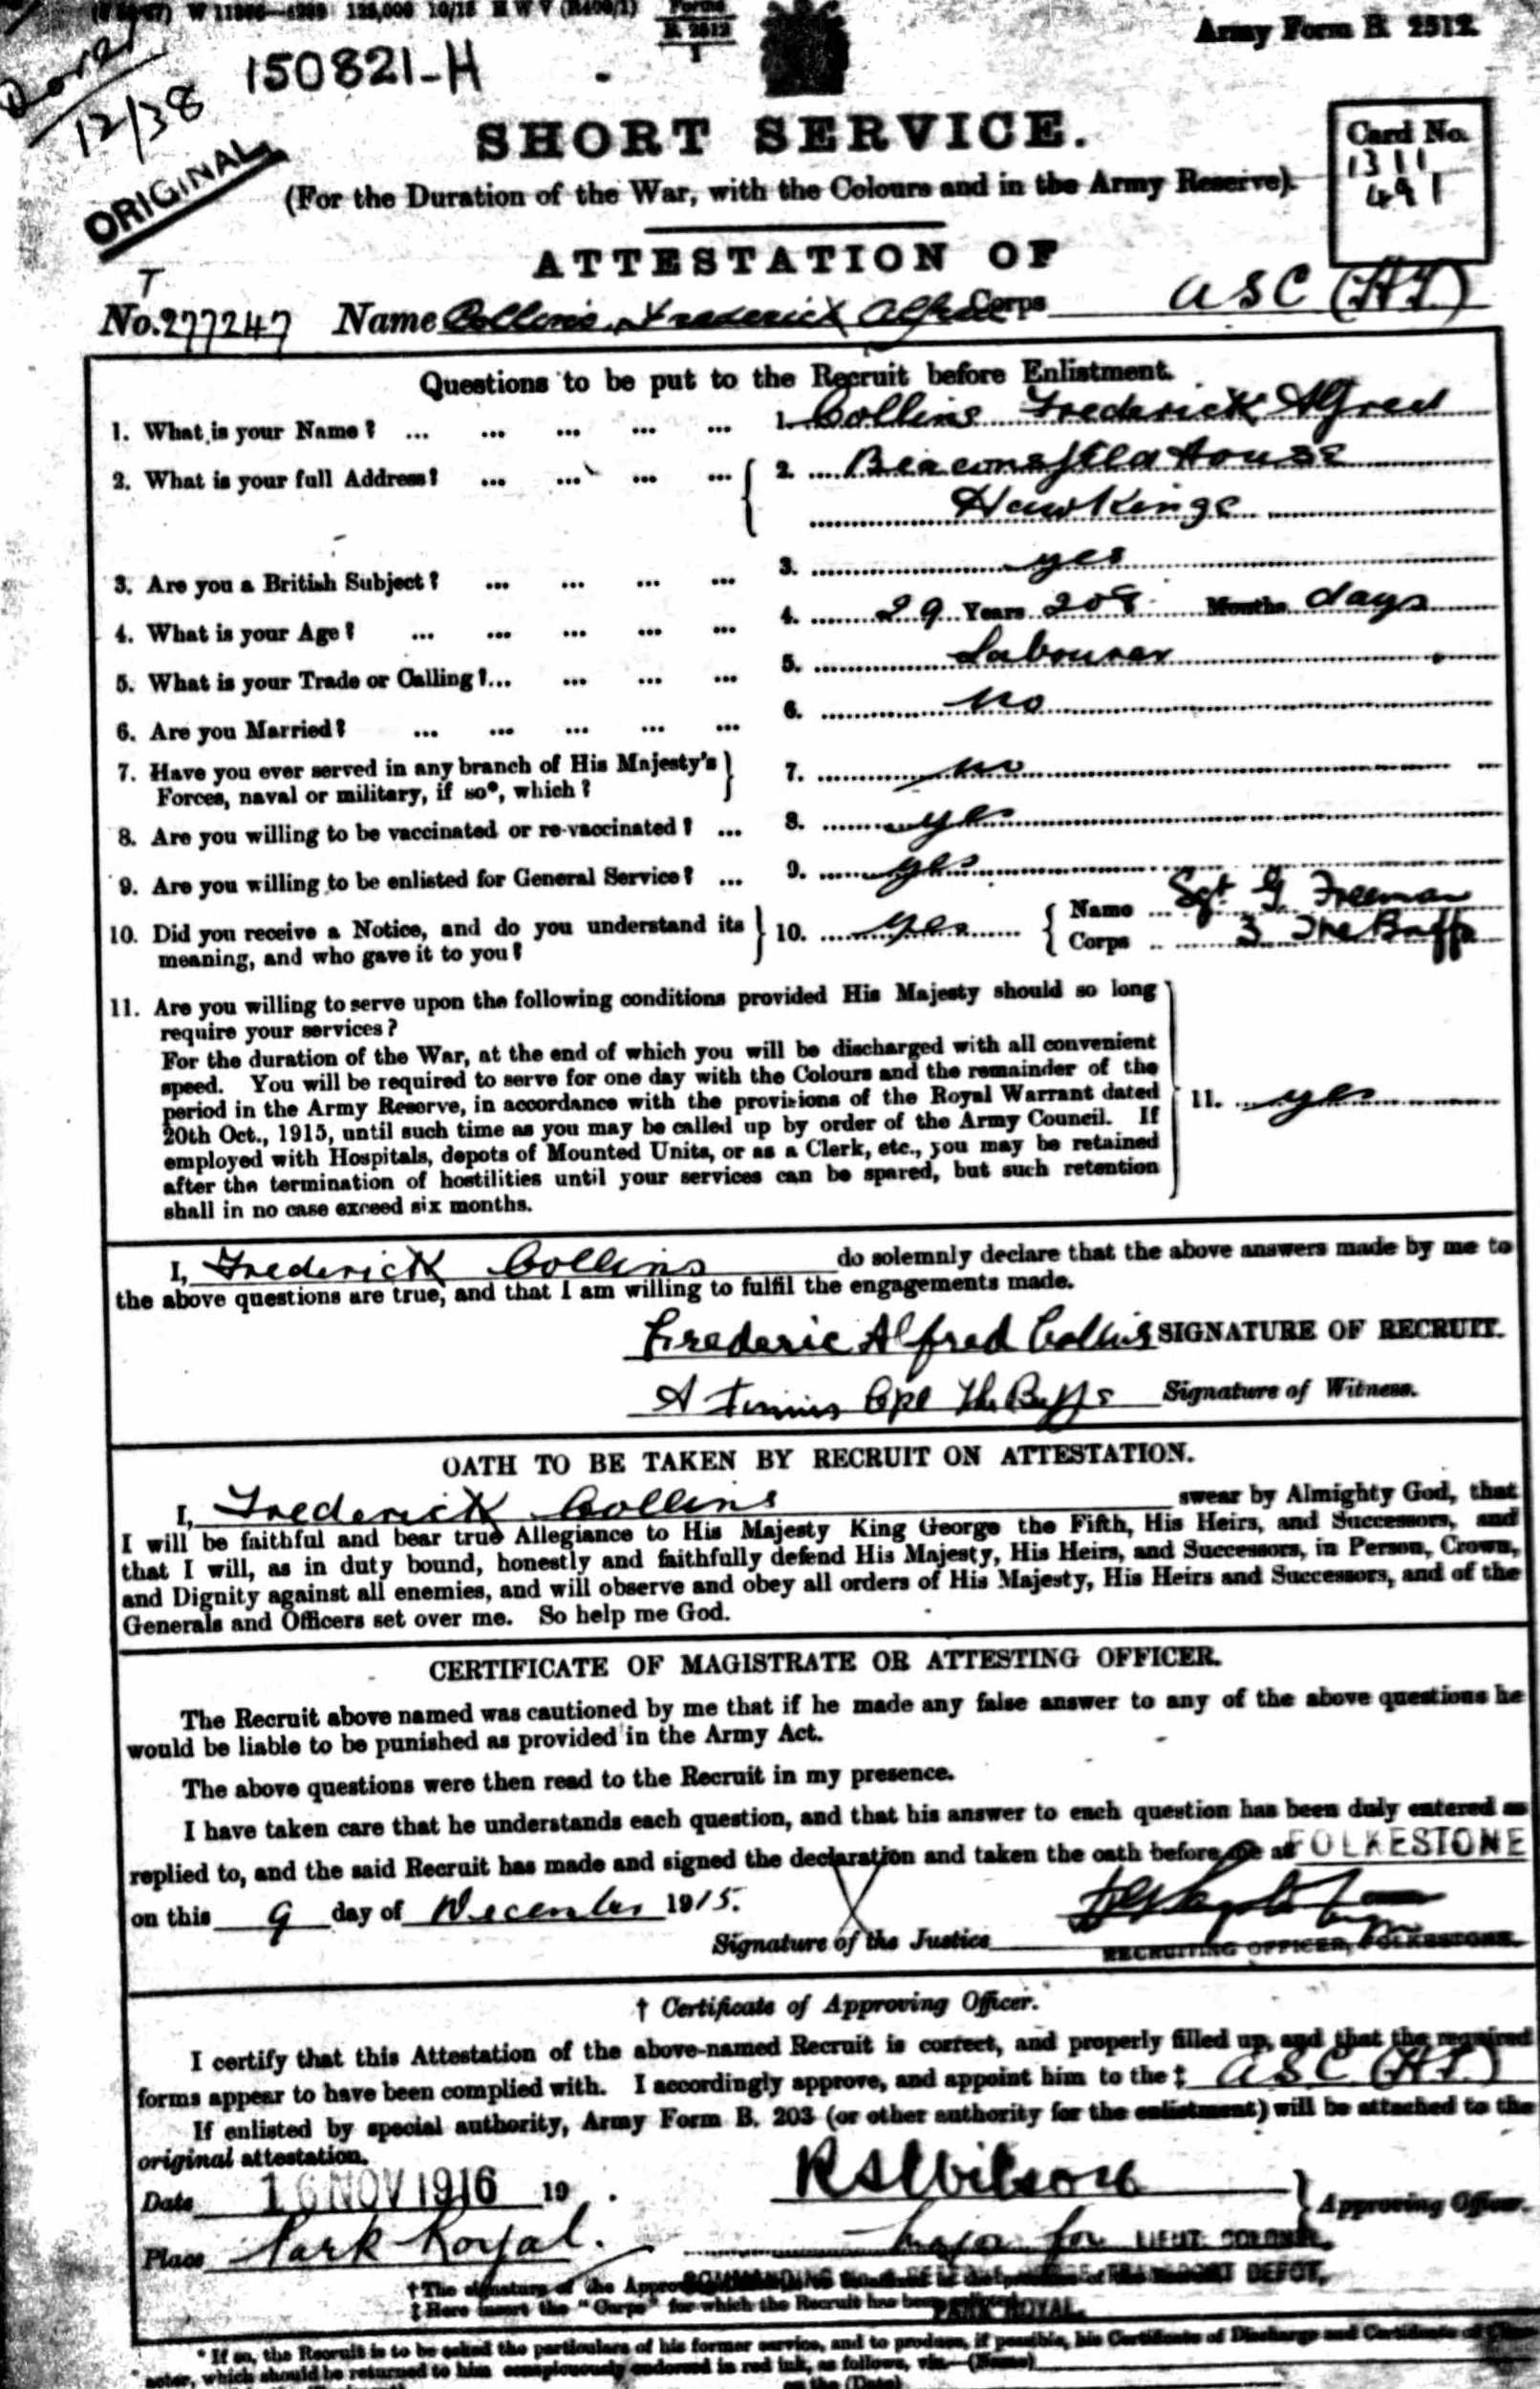 12/38
150821-H
Army Form B 2512
ORIGINAL
SHORT SERVICE.
(For the Duration of the War, with the Colours and in the Army Reserve).
Card No.
1311
491
ATTESTATION OF
T
No. 277247 Name Collins Frederick Alfred Corps ASC (HT)
Questions to be put to the Recruit before Enlistment.
1. What is your Name? ... ... ... ... ... 1. Collins Frederick Alfred
2. What is your full Address? ... ... ... ... 2. Beaconsfield House
Hawkinge
3. Are you a British Subject? ... ... ... ... 3. yes
4. What is your Age? ... ... ... ... ... 4. 29 Years 208 Months days
5. What is your Trade or Calling?... ... ... ... 5. Labourer
6. Are you Married? ... ... ... ... ... 6. No
7. Have you ever served in any branch of His Majesty's 7. no
Forces, naval or military, if so*, which?
8. Are you willing to be vaccinated or re-vaccinated? ... 8. yes
9. Are you willing to be enlisted for General Service? ... 9. yes
10. Did you receive a Notice, and do you understand its 10. yes Name Sgt G Freeman
meaning, and who gave it to you? Corps 3 The Buffs
11. Are you willing to serve upon the following conditions provided His Majesty should so long
require your services?
For the duration of the War, at the end of which you will be discharged with all convenient
speed. You will be required to serve for one day with the Colours and the remainder of the
period in the Army Reserve, in accordance with the provisions of the Royal Warrant dated 11. yes
20th Oct., 1915, until such time as you may be called up by order of the Army Council. If
employed with Hospitals, depots of Mounted Units, or as a Clerk, etc., you may be retained
after the termination of hostilities until your services can be spared, but such retention
shall in no case exceed six months.
I, Frederick Collins do solemnly declare that the above answers made by me to
the above questions are true, and that I am willing to fulfil the engagements made.
Frederic Alfred Collins SIGNATURE OF RECRUIT.
A Cpl The Buffs Signature of Witness.
OATH TO BE TAKEN BY RECRUIT ON ATTESTATION.
I, Frederick Collins swear by Almighty God, that
I will be faithful and bear true Allegiance to His Majesty King George the Fifth, His Heirs, and Successors, and
that I will, as in duty bound, honestly and faithfully defend His Majesty, His Heirs, and Successors, in Person, Crown,
and Dignity against all enemies, and will observe and obey all orders of His Majesty, His Heirs and Successors, and of the
Generals and Officers set over me. So help me God.
CERTIFICATE OF MAGISTRATE OR ATTESTING OFFICER.
The Recruit above named was cautioned by me that if he made any false answer to any of the above questions he
would be liable to be punished as provided in the Army Act.
The above questions were then read to the Recruit in my presence.
I have taken care that he understands each question, and that his answer to each question has been duly entered as
replied to, and the said Recruit has made and signed the declaration and taken the oath before me at FOLKESTONE
on this 9 day of December 1915.
Signature of the Justice
RECRUITING OFFICER, FOLKESTONE.
† Certificate of Approving Officer.
I certify that this Attestation of the above-named Recruit is correct, and properly filled up, and that the required
forms appear to have been complied with. I accordingly approve, and appoint him to the ‡ ASC (HT)
If enlisted by special authority, Army Form B. 203 (or other authority for the enlistment) will be attached to the
original attestation.
Date 16 NOV 1916 19 . RSWilson
Approving Officer.
Place Park Royal. Major for LIEUT COLONEL,
COMMANDING TRANSPORT DEPOT,
†The signature of the
‡ Here insert the "Corps" for which the Recruit has been
PARK ROYAL.
* If so, the Recruit is to be asked the particulars of his former service, and to produce, if possible, his Certificate of Discharge and Certificate of
which should be returned to him conspicuously endorsed in red ink, as follows, viz.—(Name)
on the (Date)